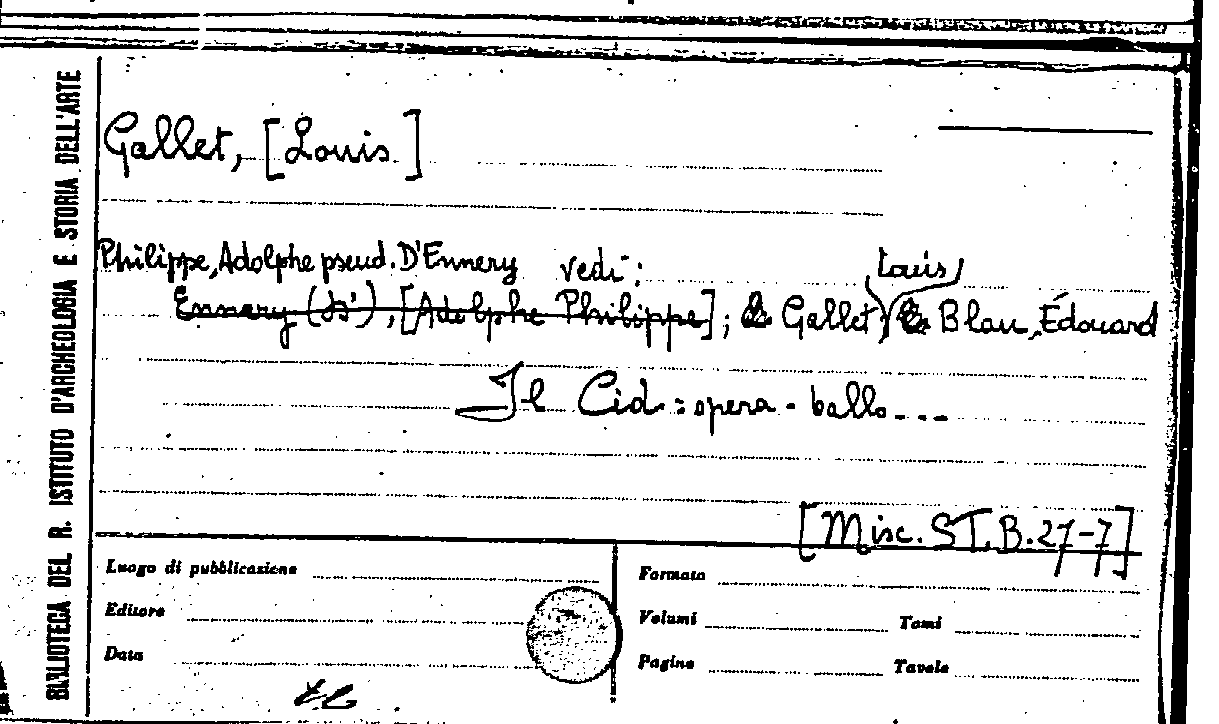 BIBLIOTECA DEL R. ISTITUTO D'ARCHEOLOGIA E STORIA DELL'ARTE
Gallet, [Louis]
Philippe, Adolphe pseud. D'Ennery vedi:
Louis
Ennery (D'), [Adolphe Philippe]; Gallet, Blau, Édouard
Il Cid : opera - ballo...
[Misc. ST. B. 27-7]
Luogo di pubblicazione
Editore
Data
Formato
Volumi Tomi
Pagine Tavole